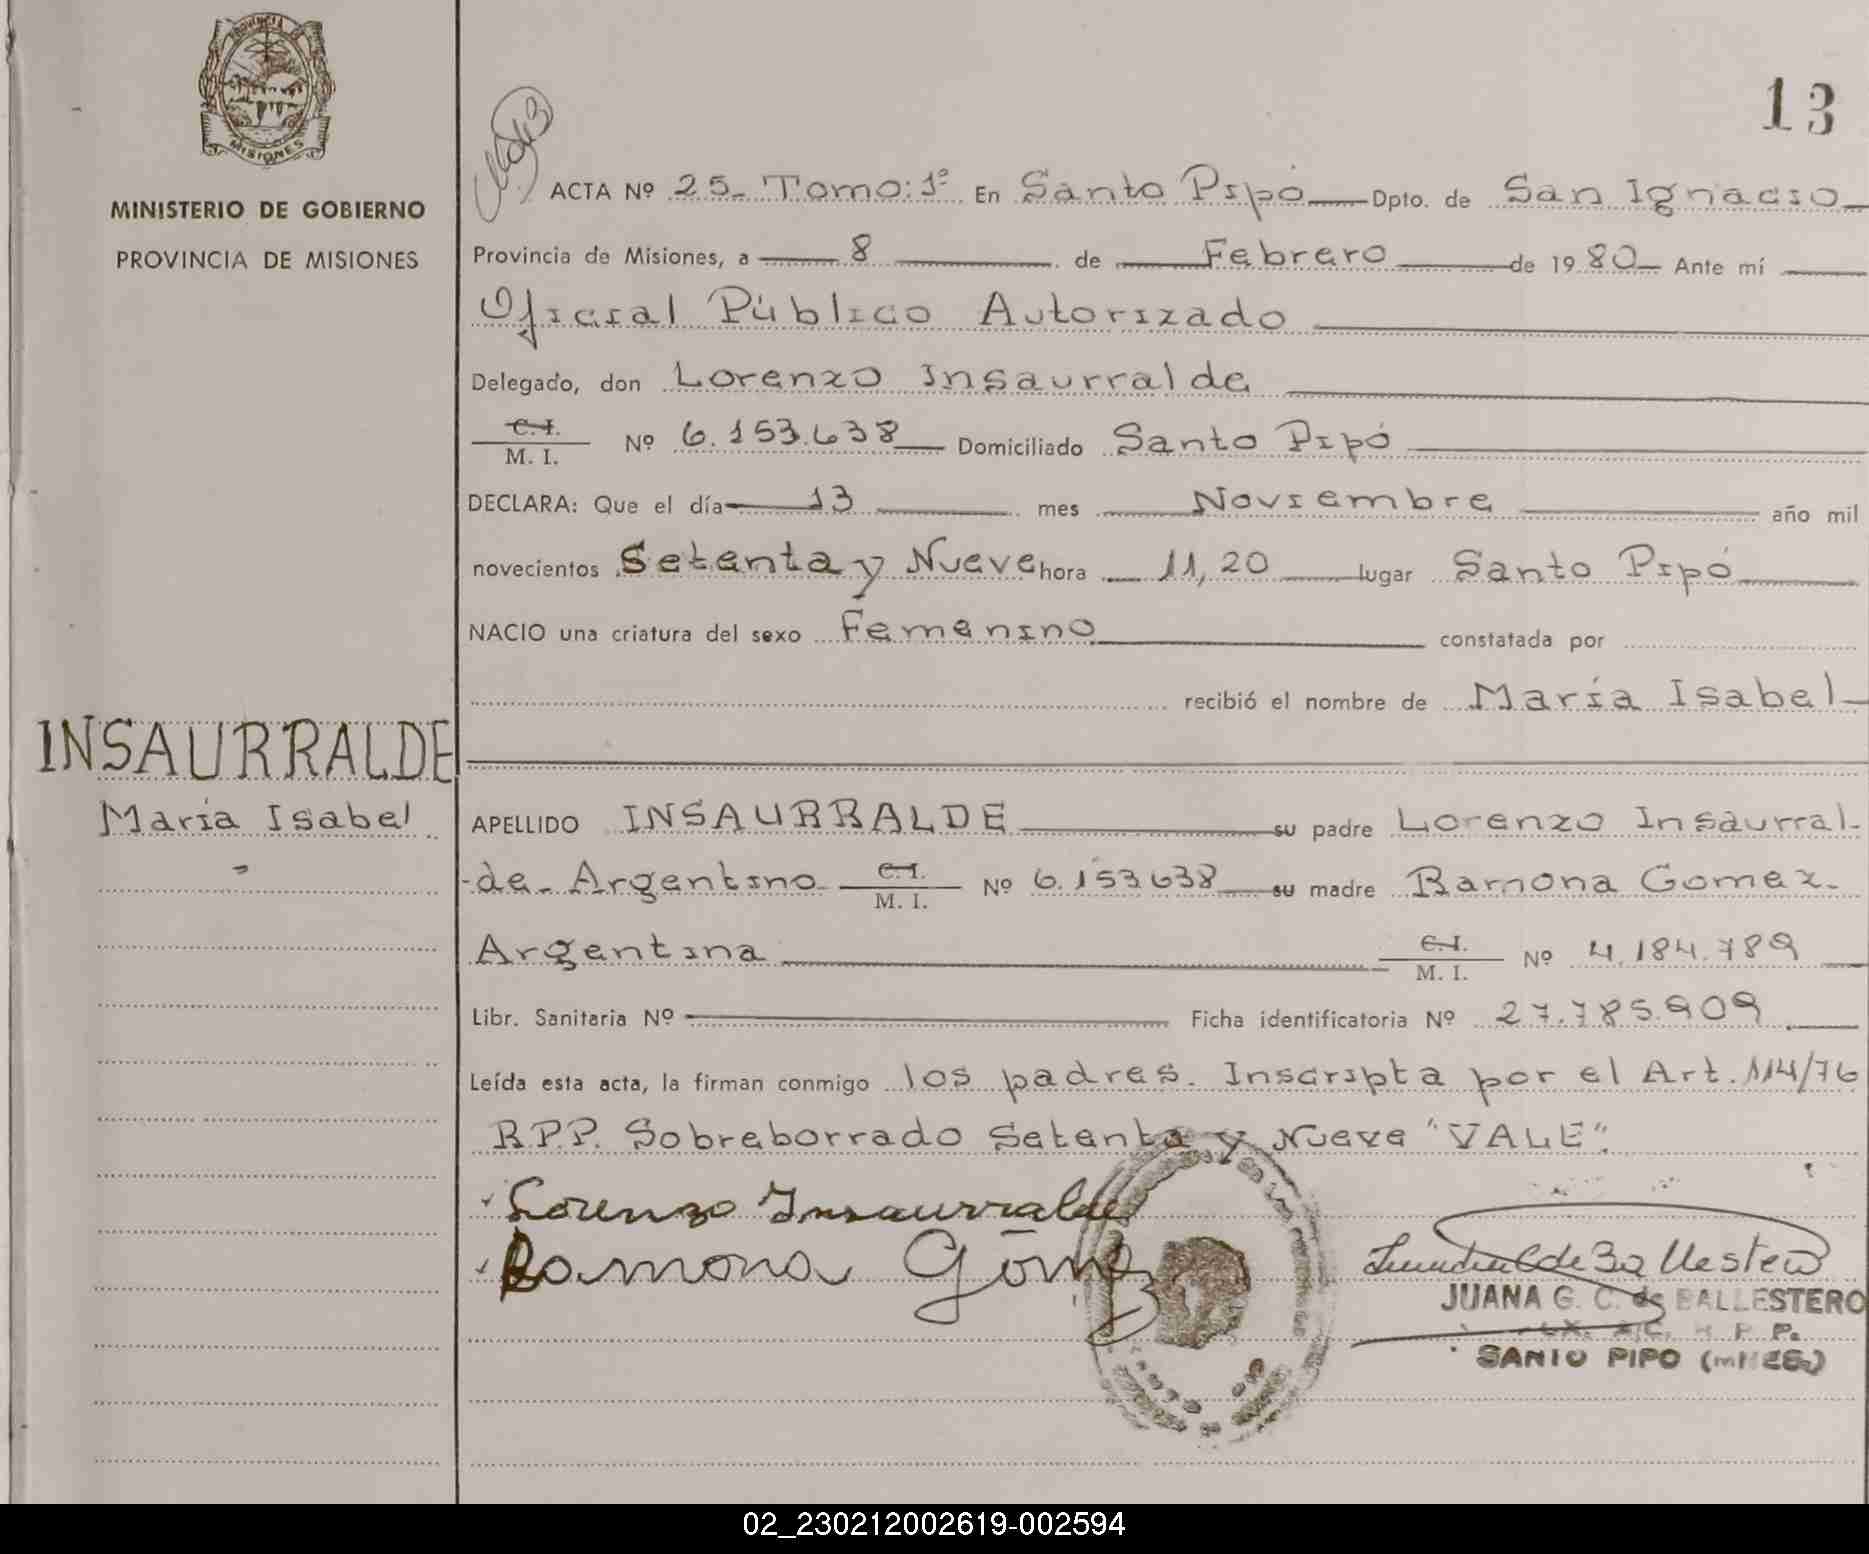 PROVINCIA DE
MISIONES
MINISTERIO DE GOBIERNO
PROVINCIA DE MISIONES
INSAURRALDE
María Isabel
13
ACTA Nº 25_ Tomo: 1º En Santo Pipó Dpto. de San Ignacio
Provincia de Misiones, a 8 de Febrero de 1980 Ante mí
Oficial Público Autorizado
Delegado, don Lorenzo Insaurralde
C. I. / M. I. Nº 6.153.638 Domiciliado Santo Pipó
DECLARA: Que el día 13 mes Noviembre año mil
novecientos Setenta y Nueve hora 11,20 lugar Santo Pipó
NACIO una criatura del sexo Femenino constatada por
recibió el nombre de María Isabel
APELLIDO INSAURRALDE su padre Lorenzo Insaurral-
-de_ Argentino C. I. / M. I. Nº 6.153.638 su madre Ramona Gomez_
Argentina C. I. / M. I. Nº 4.184.789
Libr. Sanitaria Nº Ficha identificatoria Nº 27.785.909
Leída esta acta, la firman conmigo los padres. Inscripta por el Art. 114/76
R.P.P. Sobreborrado Setenta y Nueve "VALE".
Lorenzo Insaurralde
Ramona Gómez
de Ballestero
JUANA G. C. de BALLESTERO
R. P. P.
SANTO PIPO (MNES.)
02_230212002619-002594